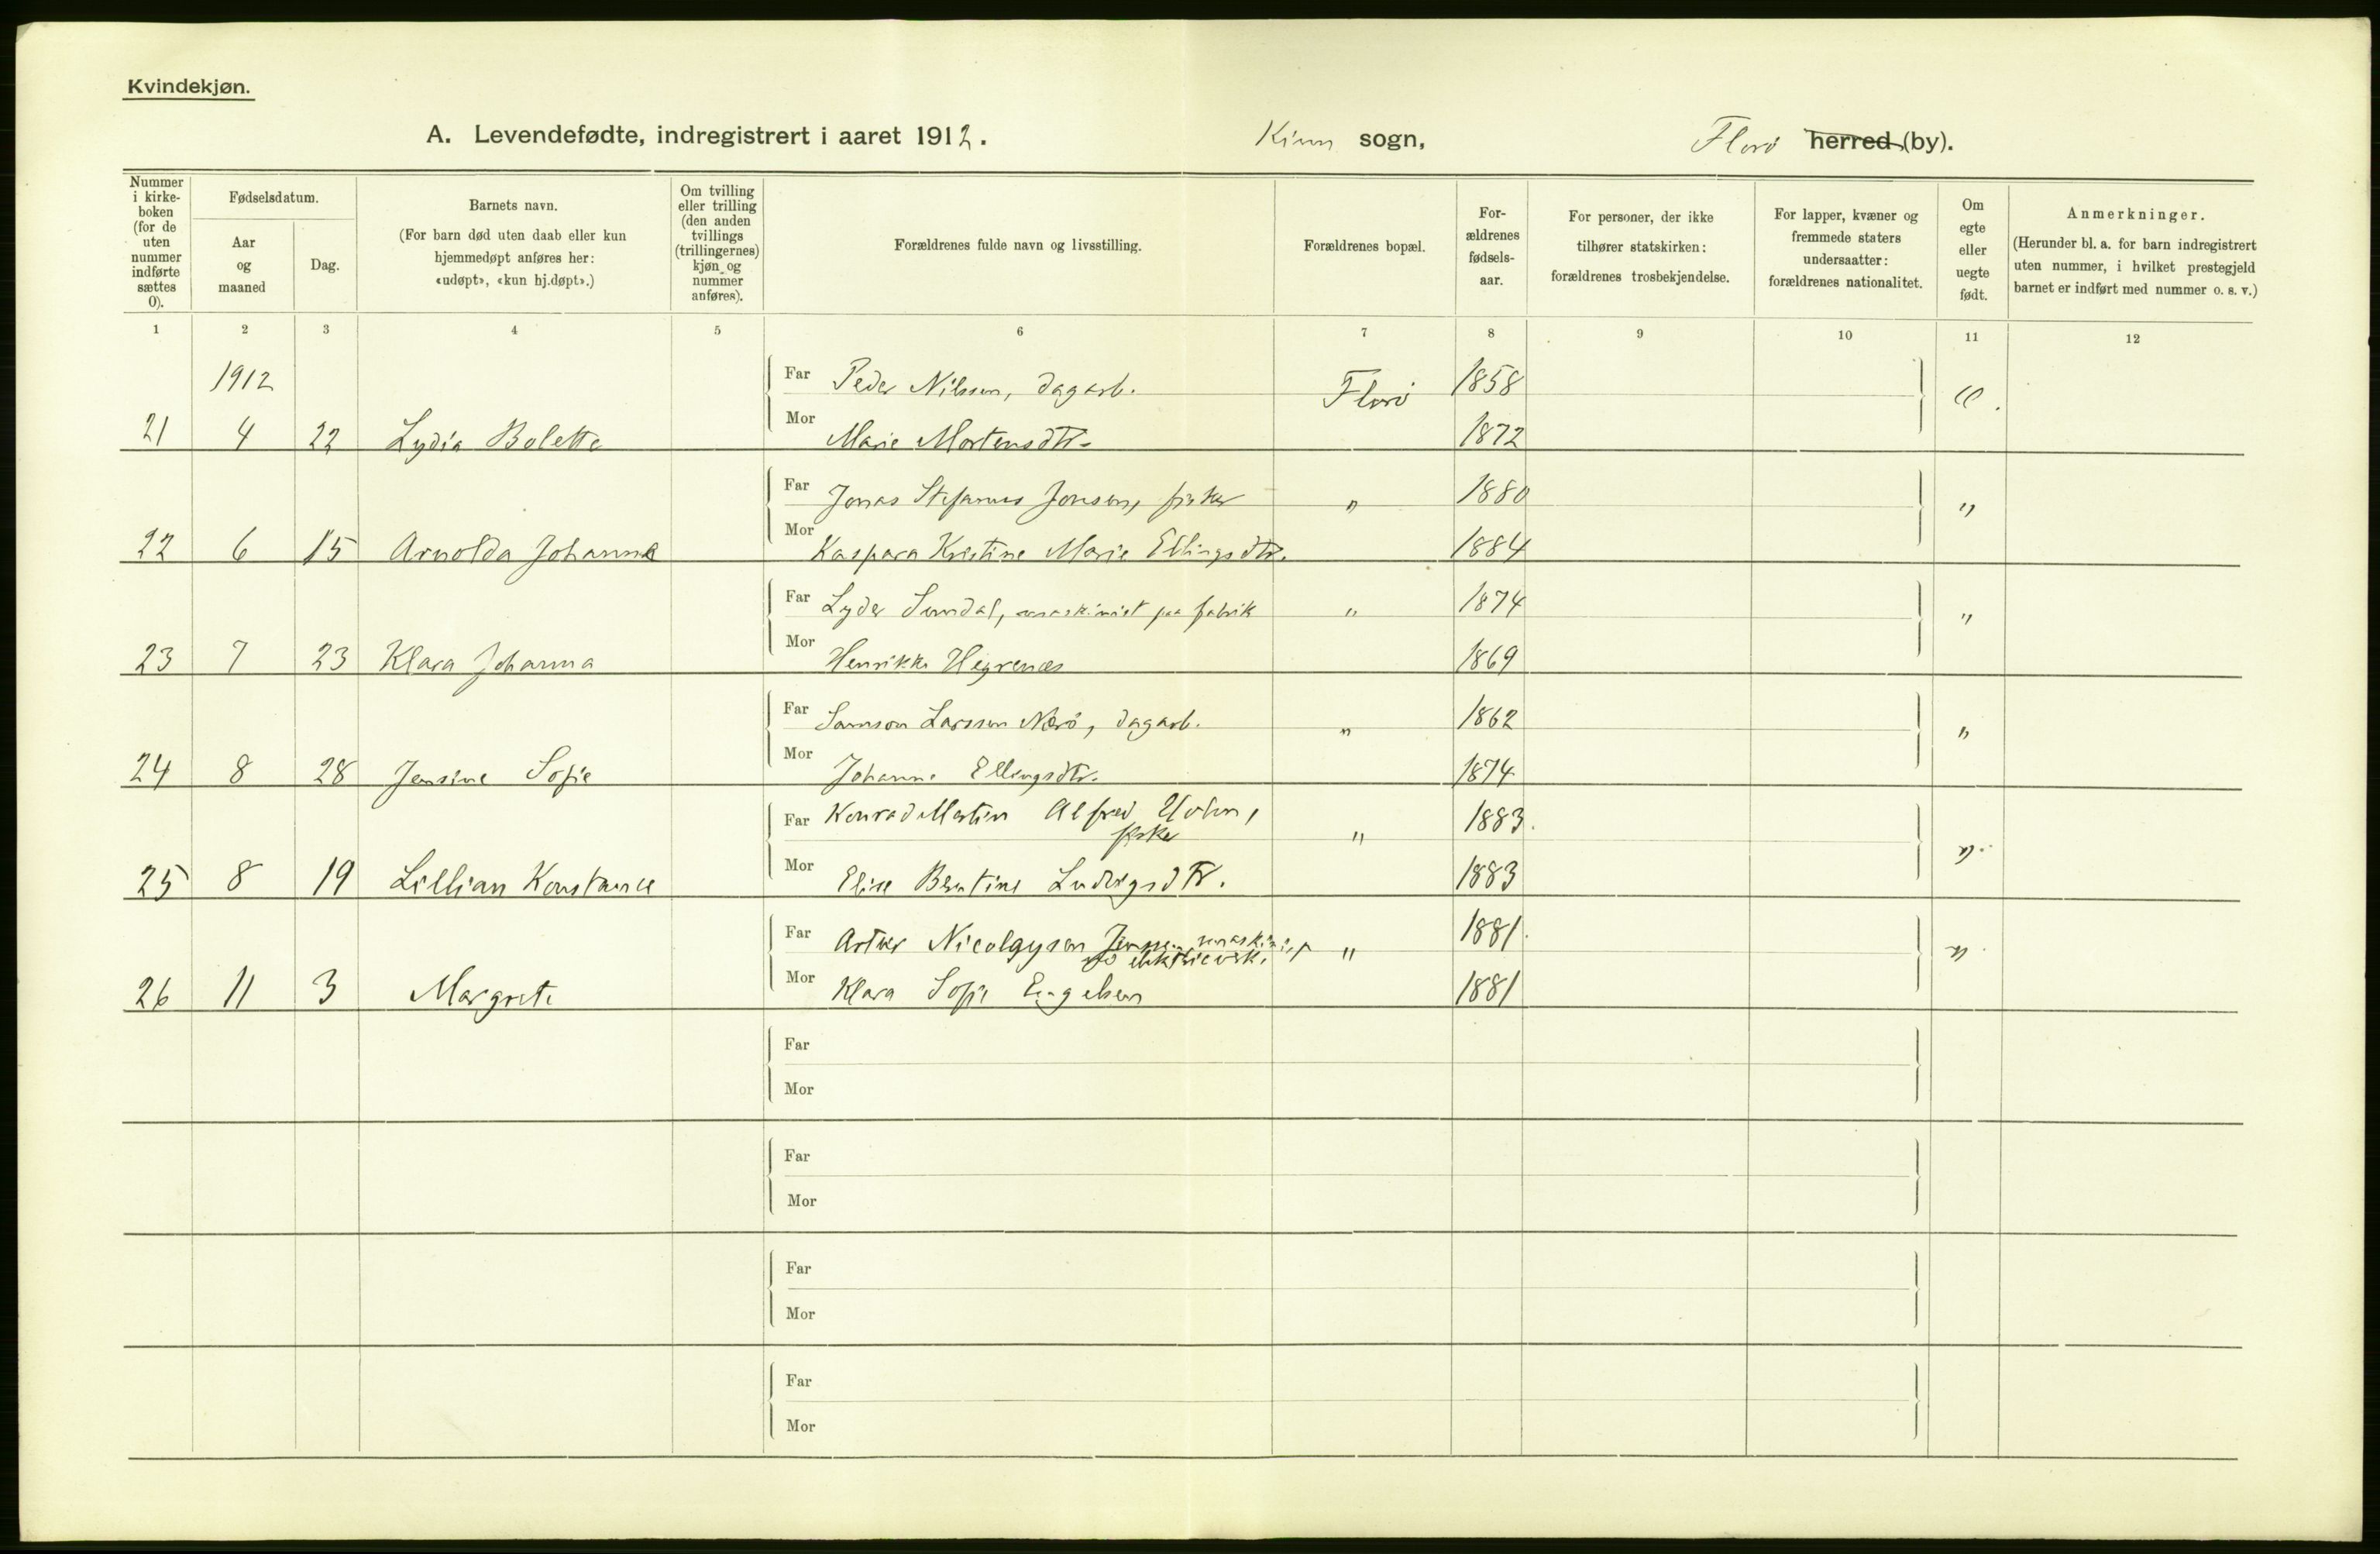 Kvindekjøn.
A. Levendefødte, indregistrert i aaret 1912. Kinn sogn, Florø herred (by).
Nummer i kirkeboken (for de uten nummer indførte sættes 0).
Fødselsdatum.
Aar og maaned
Dag.
Barnets navn.
(For barn død uten daab eller kun
hjemmedøpt anføres her:
«udøpt», «kun hj.døpt».)
Om tvilling
eller trilling
(den anden
tvillings
(trillingernes)
kjøn og
nummer
anføres).
Forældrenes fulde navn og livsstilling.
Forældrenes bopæl.
For-
ældrenes
fødsels-
aar.
For personer, der ikke
tilhører statskirken:
forældrenes trosbekjendelse.
For lapper, kvæner og
fremmede staters
undersaatter:
forældrenes nationalitet.
Om
egte
eller
uegte
født.
Anmerkninger.
(Herunder bl. a. for barn indregistrert
uten nummer, i hvilket prestegjeld
barnet er indført med nummer o. s. v.)
1 2 3 4 5 6 7 8 9 10 11 12
1912 Far Peder Nilssen, dagarb. Florø 1858 e.
21 4 22 Lydia Bolette Mor Marie Mortensdtr. 1872
Far Jonas Stefanus Jonsen, fisker " 1880 "
22 6 15 Arnolda Johanne Mor Kaspara Kristine Marie Ellingsdtr. 1884
Far Lyder Sundal, maskinist paa fabrik " 1874 "
23 7 23 Klara Johanna Mor Henrikke Hegrenæs 1869
Far Samson Larssen Nærø, dagarb. " 1862 "
24 8 28 Jensine Sofie Mor Johanne Ellingsdtr. 1874
Far Konrad Martin Alfred
fisker " 1883
25 8 19 Lillian Konstance Mor Elise Bentine Ludvigsdtr. 1883
Far Artur Nicolaysen Jensen, maskinist " 1881
elektricverk.
26 11 3 Margrete Mor Klara Sofie Engelsen 1881
Far
Mor
Far
Mor
Far
Mor
Far
Mor